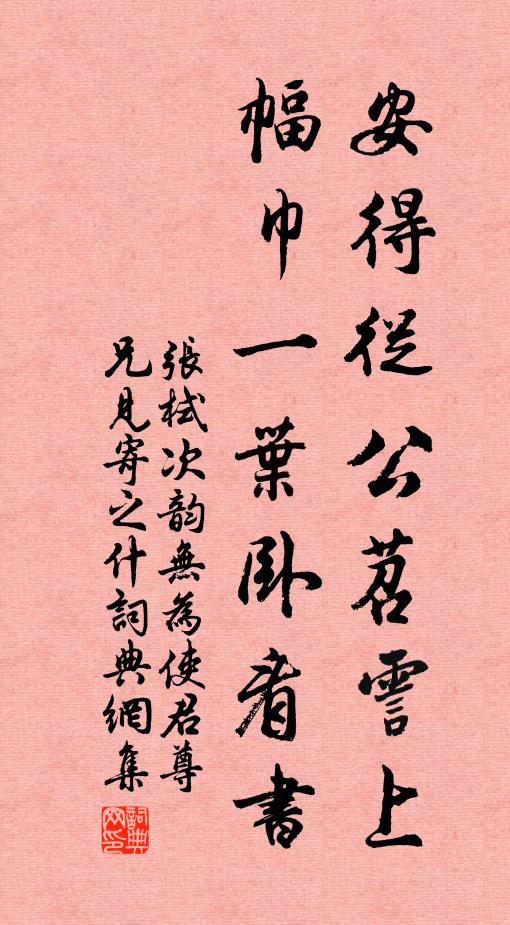 安得從公苕霅上
幅巾一葉臥看書
張栻次韵無為使君尊
兄見寄之什詞典網集
詞典网印